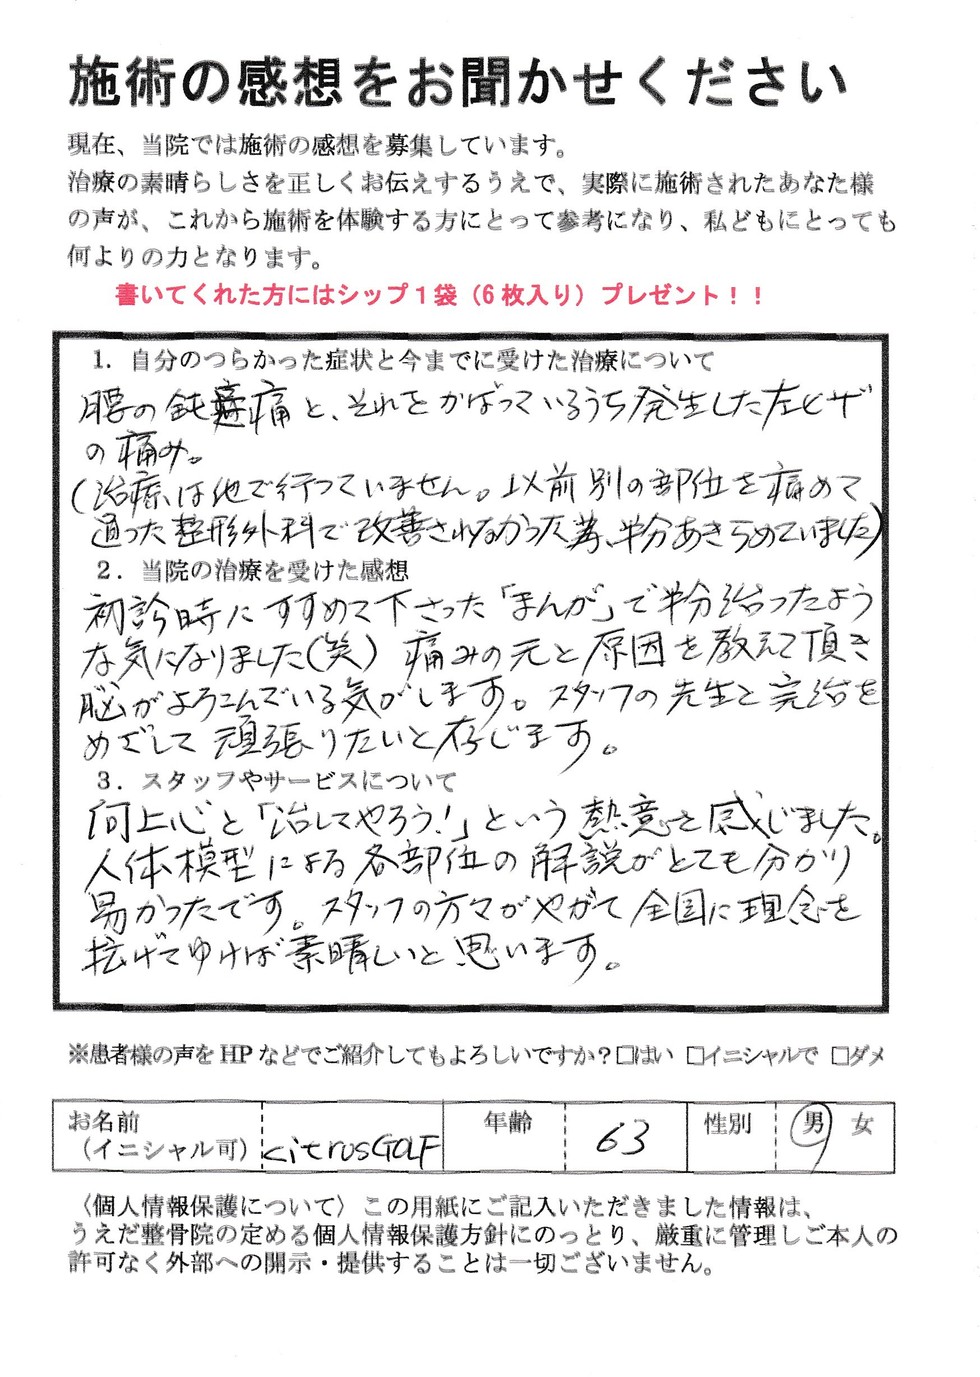 施術の感想をお聞かせください
現在、当院では施術の感想を募集しています。
治療の素晴らしさを正しくお伝えするうえで、実際に施術されたあなた様
の声が、これから施術を体験する方にとって参考になり、私どもにとっても
何よりの力となります。
書いてくれた方にはシップ１袋（６枚入り）プレゼント！！
１．自分のつらかった症状と今までに受けた治療について
腰の鈍痛と、それをかばっているうち発生した左ヒザ
の痛み。
（治療は他で行っていません。以前別の部位を痛めて
通った整形外科で改善されなかった為、半分あきらめていました）
２．当院の治療を受けた感想
初診時にすすめて下さった「まんが」で半分治ったよう
な気になりました（笑）痛みの元と原因を教えて頂き
脳がよろこんでいる気がします。スタッフの先生と完治を
めざして頑張りたいと存じます。
３．スタッフやサービスについて
向上心と「治してやろう！」という熱意を感じました。
人体模型による各部位の解説がとても分かり
易かったです。スタッフの方々がやがて全国に理念を
拡げてゆけば素晴しいと思います。
※患者様の声をHPなどでご紹介してもよろしいですか？□はい □イニシャルで □ダメ
お名前
（イニシャル可） citrusGOLF 年齢 63 性別 男 女
〈個人情報保護について〉この用紙にご記入いただきました情報は、
うえだ整骨院の定める個人情報保護方針にのっとり、厳重に管理しご本人の
許可なく外部への開示・提供することは一切ございません。